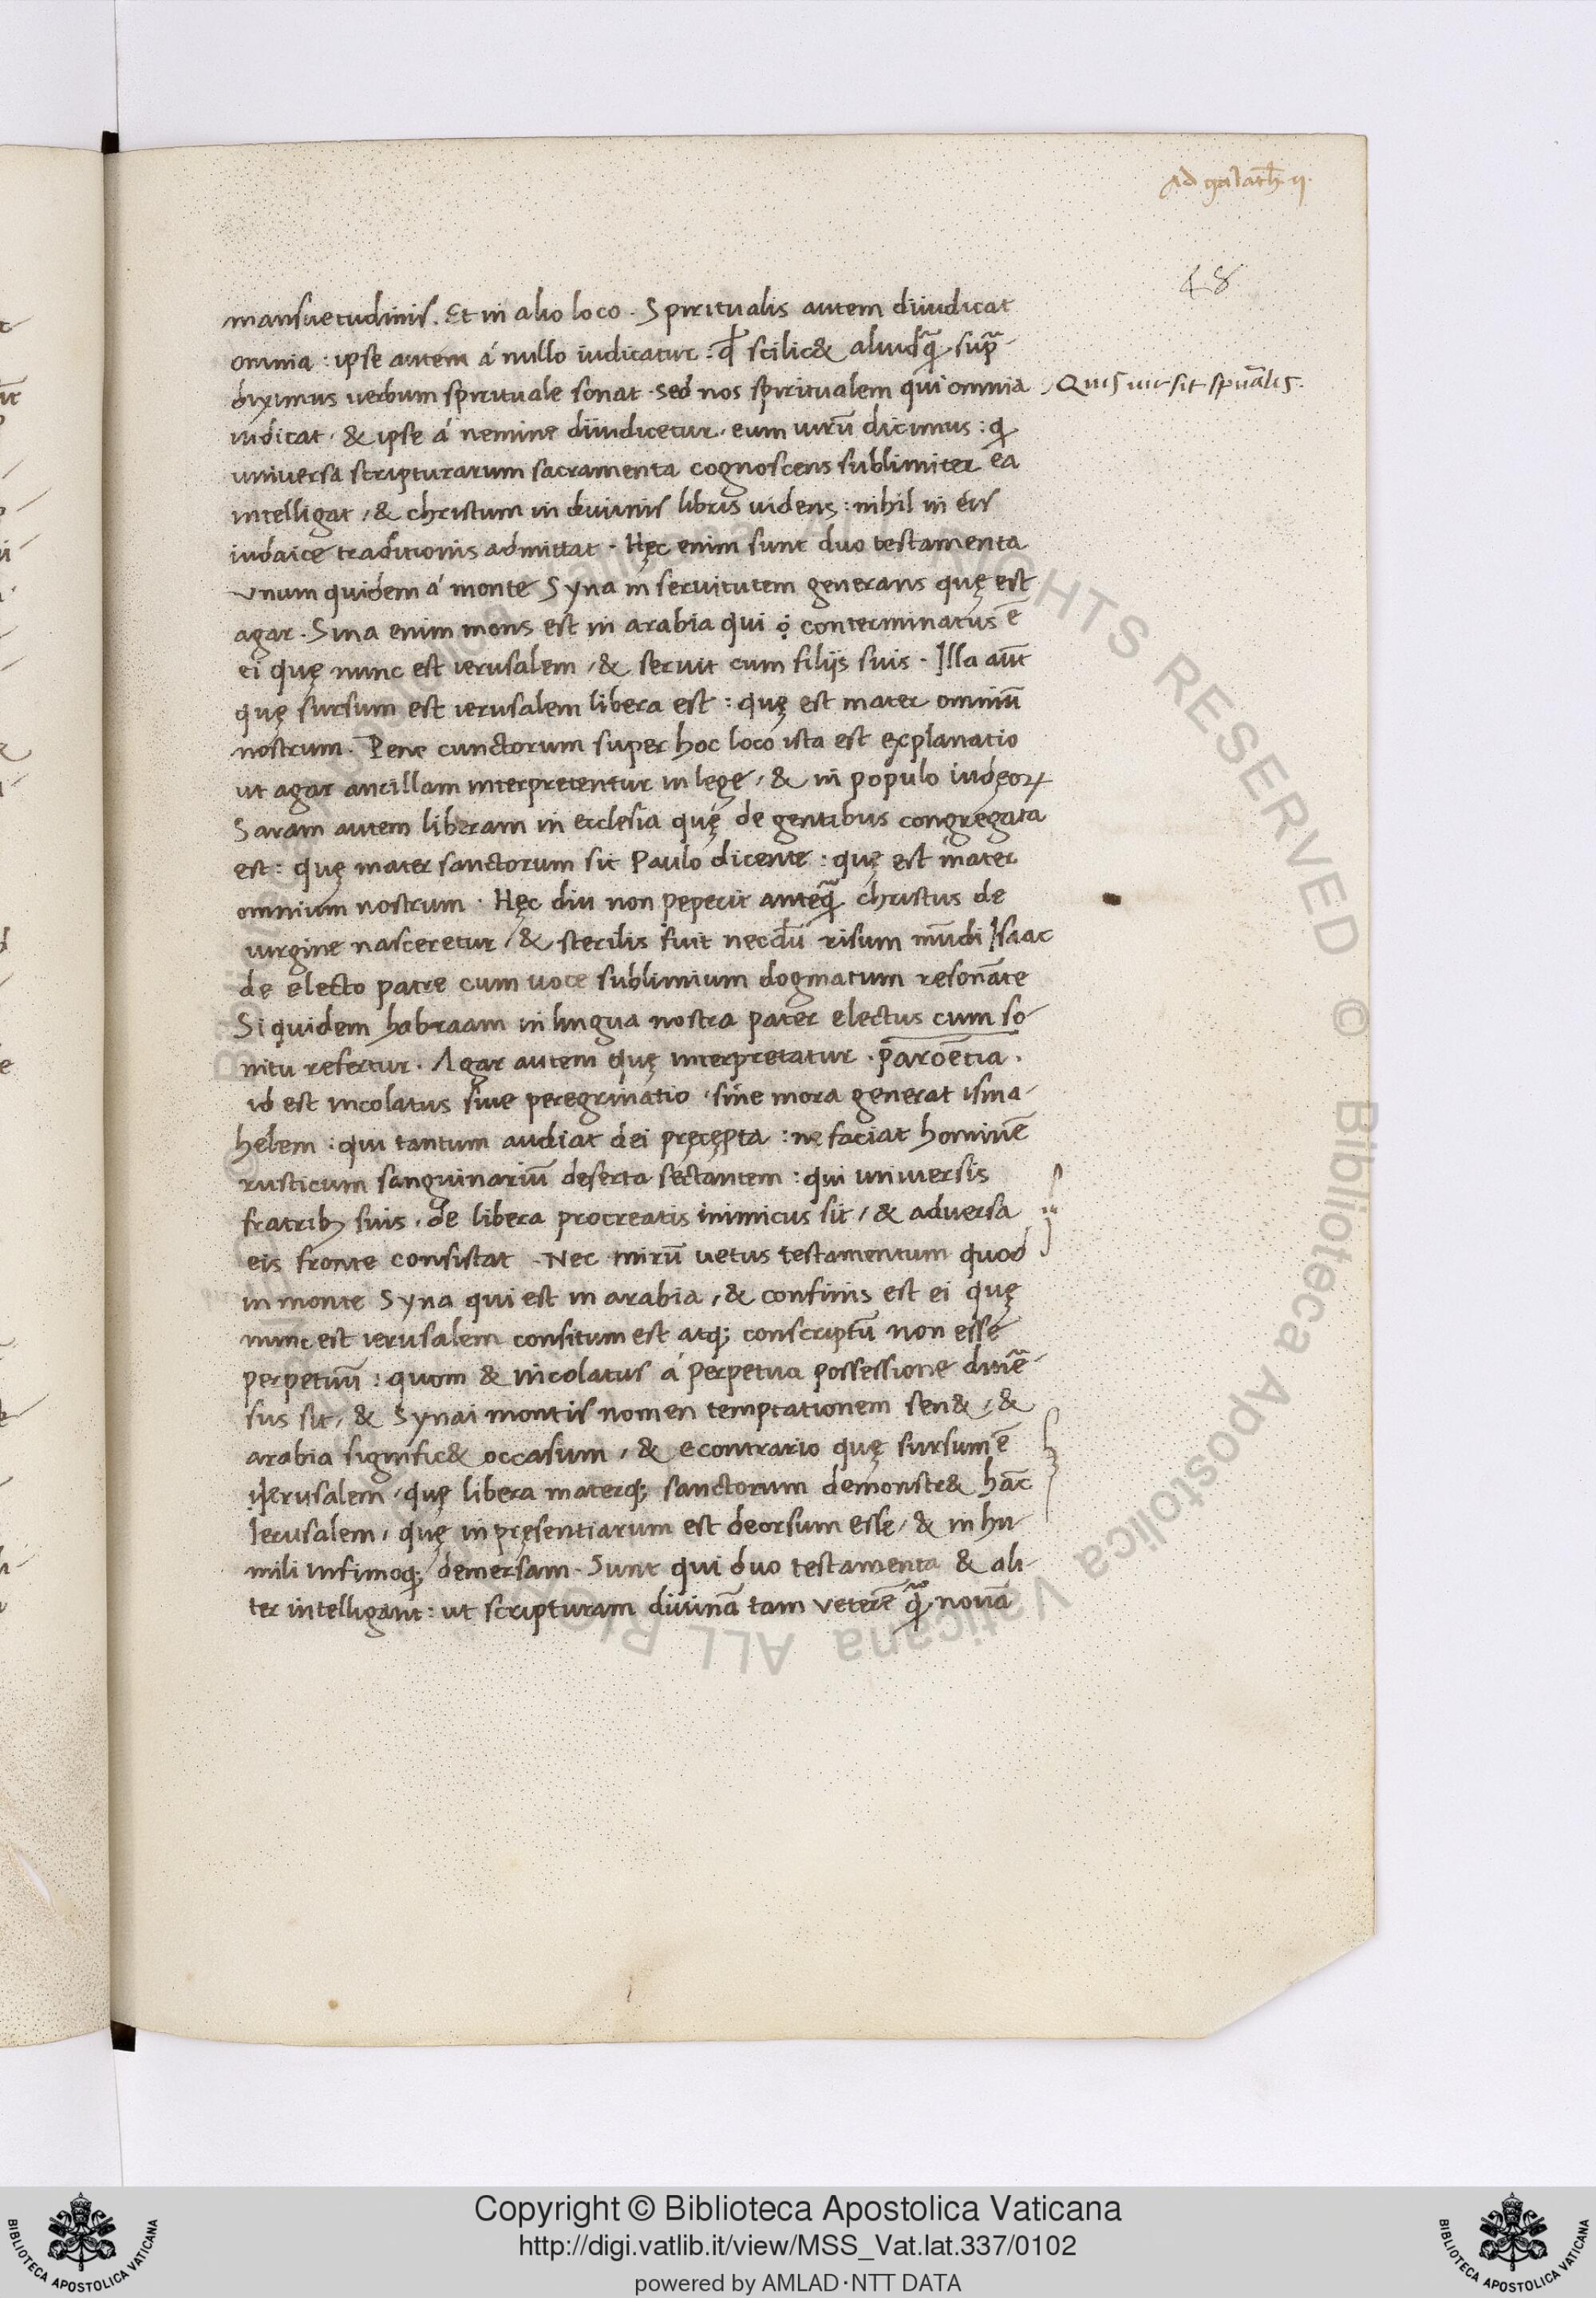 Ad galath̄ ıı.
48
mansuetudinis. Et in alio loco. Spiritualis autem diiudicat
omnia: ipse autem á nullo iudicatur: qđ scilic& aliudq̃ supr̃
diximus uerbum spirituale sonat. sed nos spiritualem qui omnia
Quis uir sit spũalis.
iudicat. & ipse á nemine diiudicetur. eum uirũ dicimus: q
universa scripturarum sacramenta cognoscens sublimiter ea
intelligat, & christum in divinis libris uidens: nihil in eis
iudaice traditionis admittat. Hęc enim sunt duo testamenta
Vnum quidem á monte Syna in seruitutem generans quę est
agar. Sina enim mons est in arabia qui  conterminatus ē
ei quę nunc est ierusalem, & seruit cum filijs suis. Illa aũt
quę sursum est ierusalem libera est: quę est mater omniũ
nostrum. Pene cunctorum super hoc loco ista est explanatio
ut agar ancillam interpretentur in lege, & in populo iudęoꝝ
Saram autem liberam in ecclesia quę de gentibus congregata
est: quę mater sanctorum sit Paulo dicente: quę est mater
omnium nostrum. Hęc diu non peperit anteq̃ christus de
uirgine nasceretur, & sterilis fuit necdũ risum mũdi Isaac
de electo patre cum uoce sublimium dogmatum resonãte
Si quidem habraam in lingua nostra pater electus cum so-
nitu refertur. Agar autem quę interpretatur. paroētia.
id est incolatus siue peregrinatio. sine mora generat isma-
helem: qui tantum audiat dei pręcępta: ne faciat hominẽ
rusticum sanguinariũ deserta sectantem: qui universis
fratribꝫ suis, de libera procreatis inimicus sit, & adversa
eis fronte consistat. Nec mirũ uetus testamentum quod
in monte Syna qui est in arabia, & confinis est ei quę
nunc est ierusalem consitum est atqꝫ conscriptũ non esse
perpetuũ: quom & incolatus á perpetua possessione diuẽ-
sus sit, & Synai montis nomen temptationem sen&, &
arabia signific& occasum, & econtrario quę sursum ē
Ierusalem, quę libera materqꝫ sanctorum demonstr& hãc
Ierusalem, quę in pręsentiarum est deorsum esse, & in hu-
mili infimoqꝫ demersam. Sunt qui duo testamenta & ali-
ter intelligant: ut scripturam diuinã tam veterẽ q̃ nouã
Copyright © Biblioteca Apostolica Vaticana
http://digi.vatlib.it/view/MSS_Vat.lat.337/0102
powered by AMLAD·NTT DATA